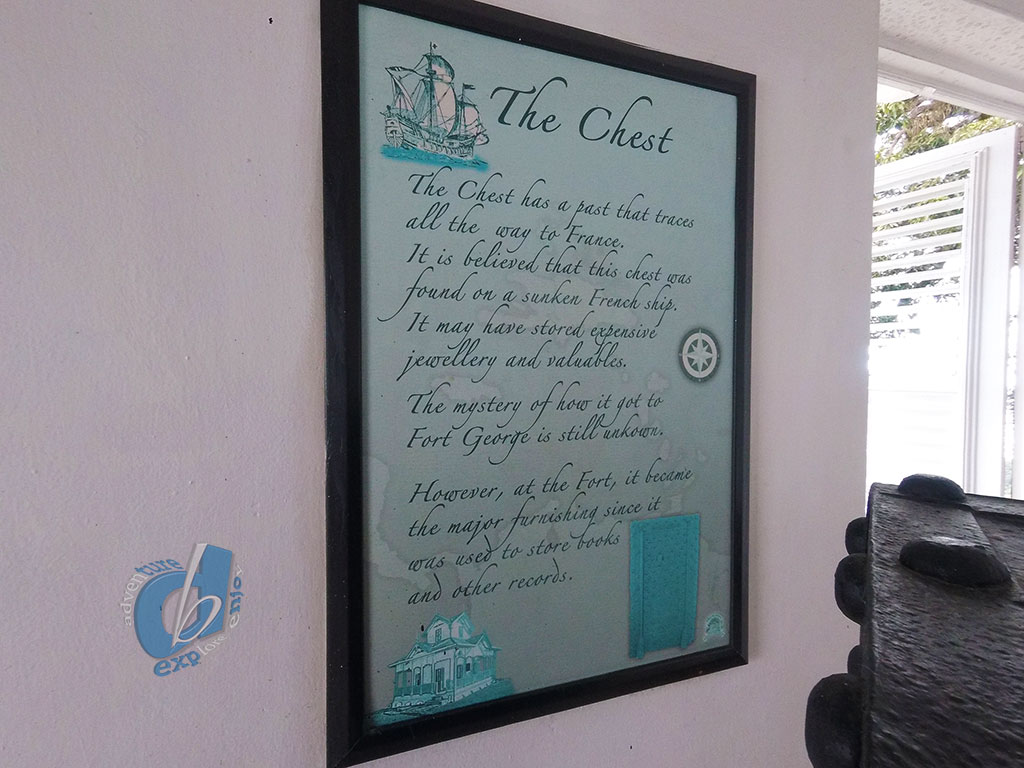 The Chest
The Chest has a past that traces
all the way to France.
It is believed that this chest was
found on a sunken French ship.
It may have stored expensive
jewellery and valuables.
The mystery of how it got to
Fort George is still unkown.
However, at the Fort, it became
the major furnishing since it
was used to store books
and other records.
adventure
explore
enjoy